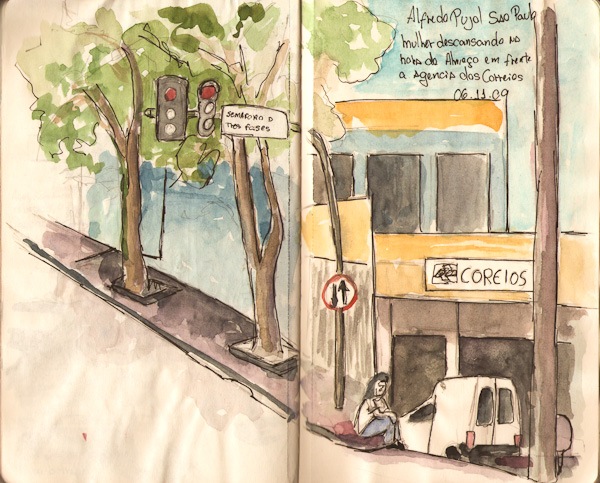 Alfredo Pujol São Paulo
mulher descansando na
hora do Almoço em frente
a agencia dos Correios
06.11.09
SEMAFORO D
TRES FASES
COREIOS